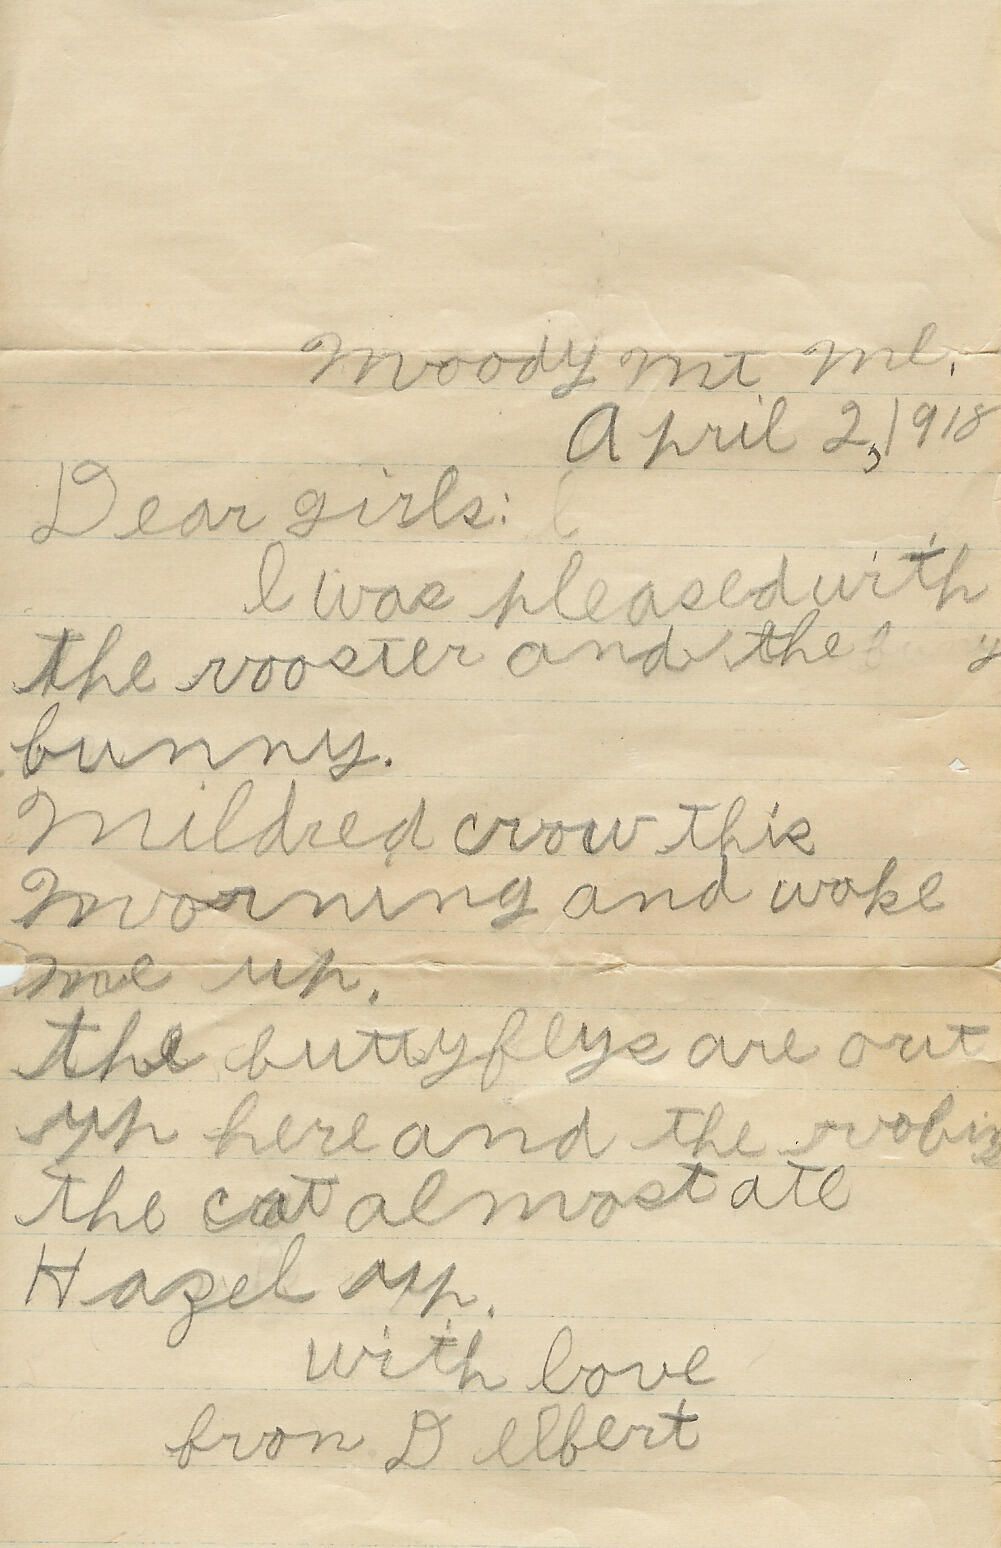 Moody Mt Me.
April 2, 1918
Dear girls:
I was pleased with
the rooster and the
bunny.
Mildred crow this
Morning and woke
me up.
the buttyflys are out
up here and the robins
the cat almost ate
Hazel up.
with love
fron Delbert